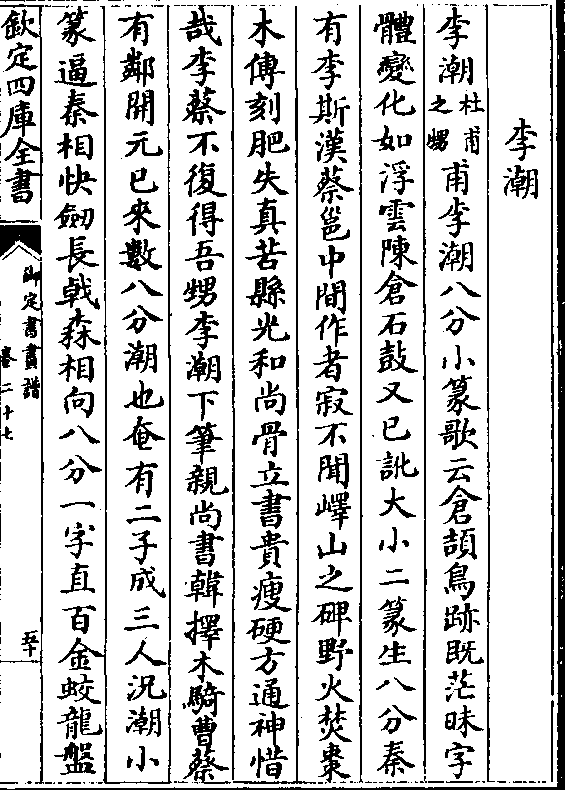 李潮
李潮杜甫之甥甫李潮八分小篆歌云倉頡鳥跡既茫昧字
體變化如浮雲陳倉石鼓又已訛大小二篆生八分秦
有李斯漢蔡邕中間作者寂不聞嶧山之碑野火焚棗
木傳刻肥失真苦縣光和尚骨立書貴瘦硬方通神惜
哉李蔡不復得吾甥李潮下筆親尚書韓擇木騎曹蔡
有鄰開元已來數八分潮也奄有二子成三人況潮小
篆逼秦相快劒長戟森相向八分一字直百金蛟龍盤
欽定四庫全書
御定書畫譜
卷二十七
五十